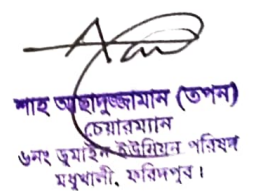 শাহ আছাদুজ্জামান (তপন)
চেয়ারম্যান
৬নং ডুমাইন ইউনিয়ন পরিষদ
মধুখালী, ফরিদপুর।